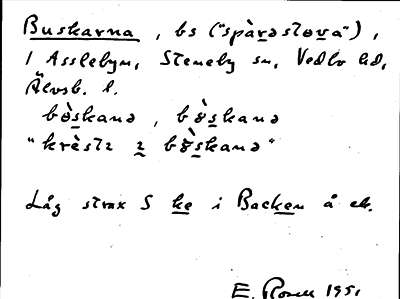 Buskarna, bs ("spàrəstova"),
I Asslebyn, Steneby sn, Vedbo hd,
Älvsb. l.
bòskanə, bòskanə
"krèstɪ ɪ bòskanə"
Låg strax S ke i Backen å ek.
E. Rosell 1951